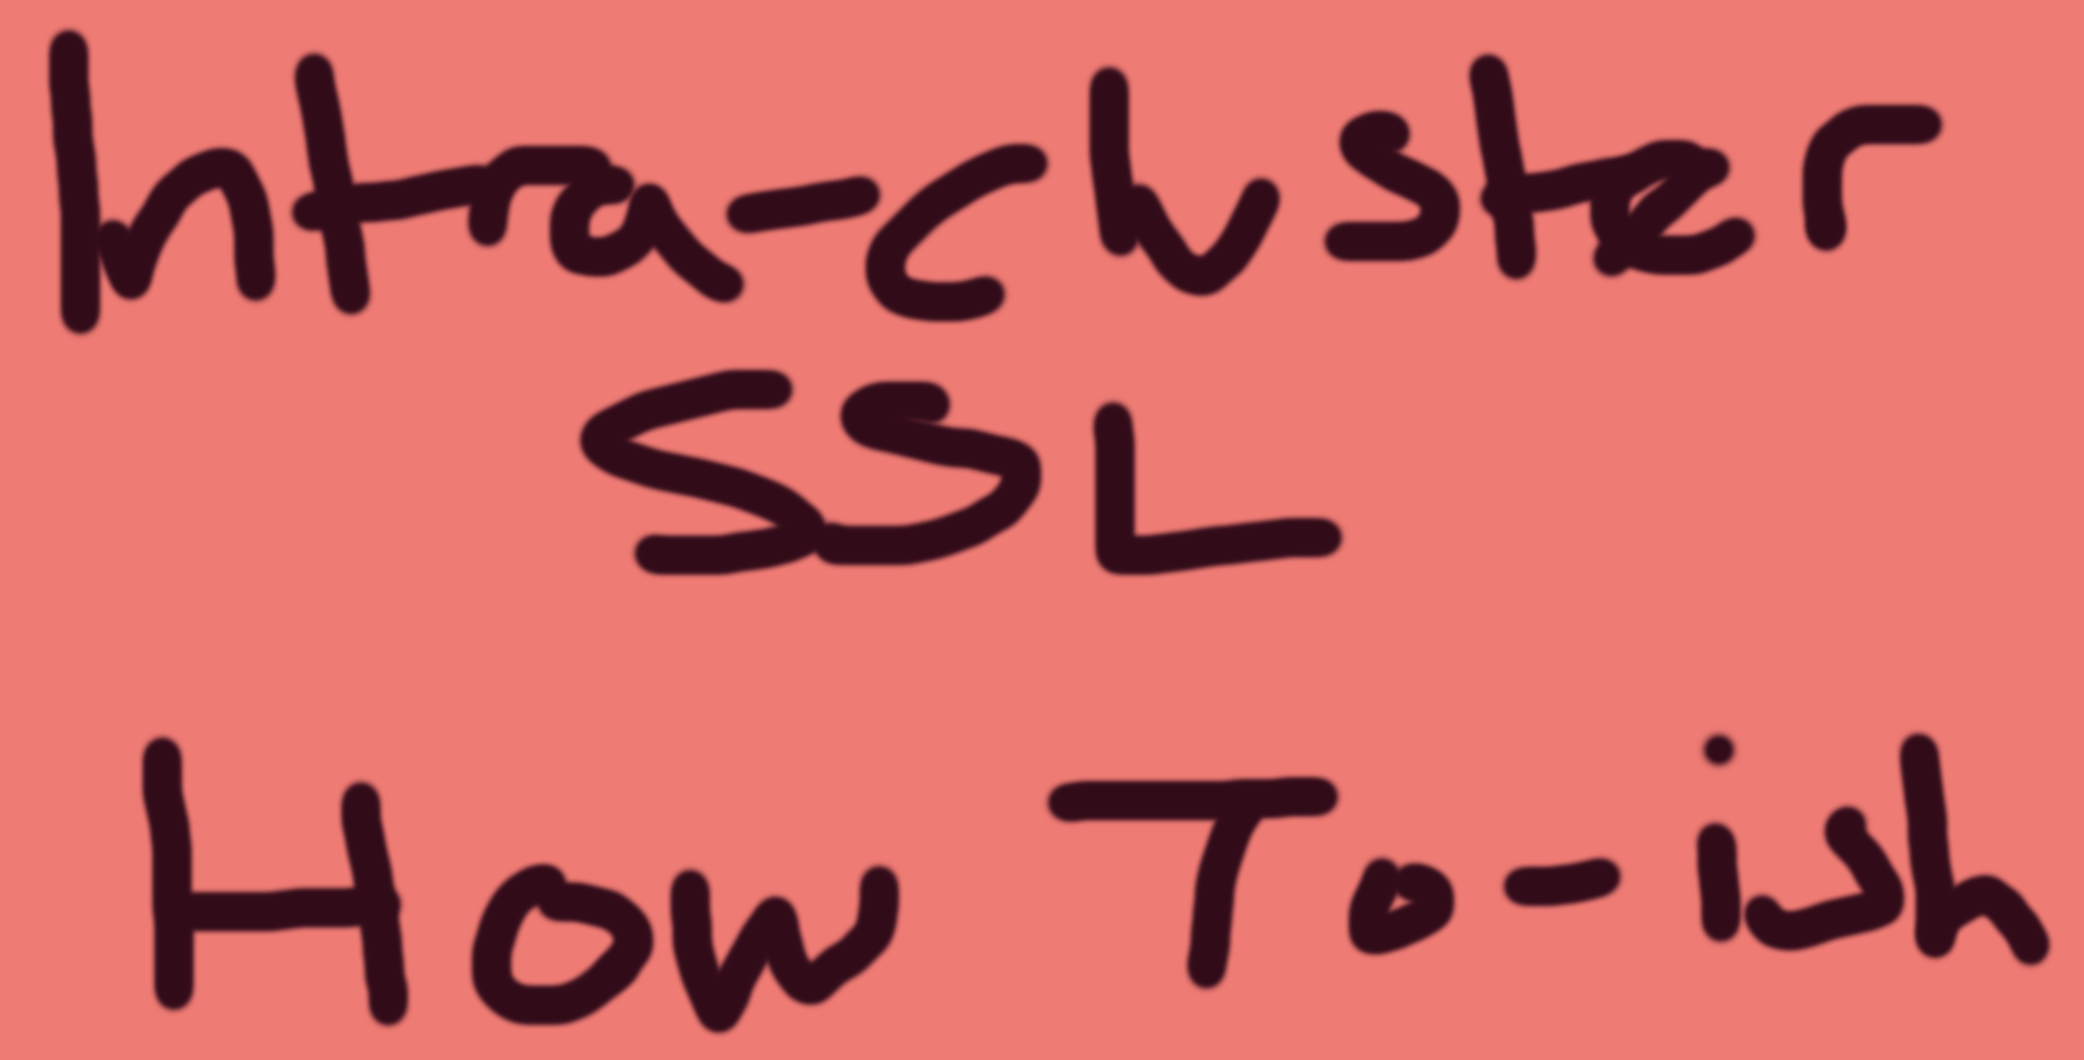 Intra-cluster
SSL
How To-ish